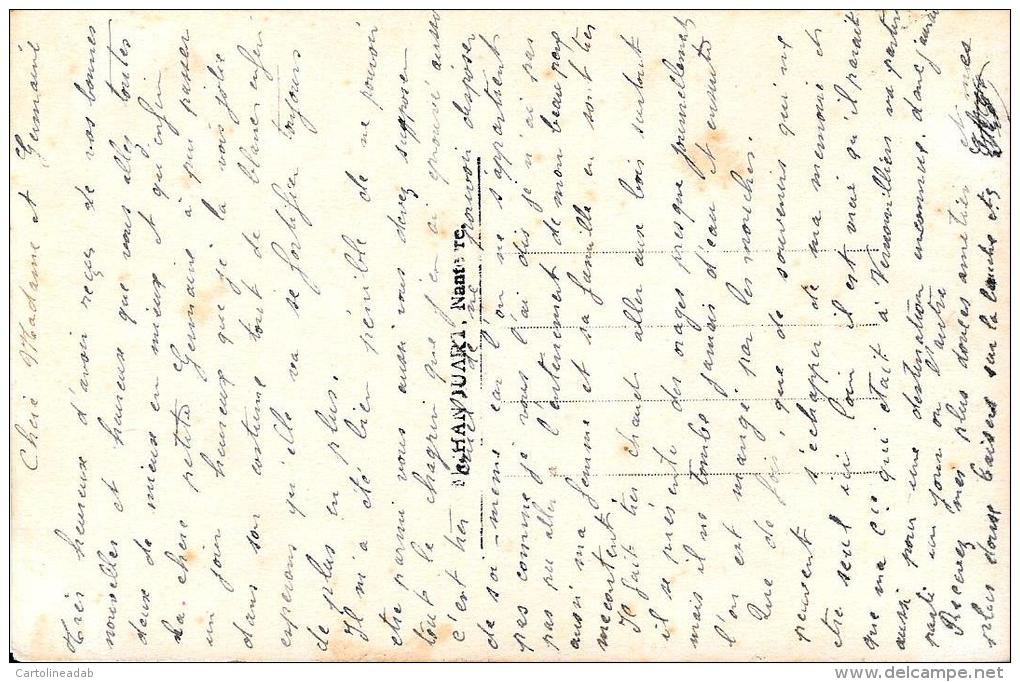 Chère Madame et Germaine
très heureux d'avoir reçu de vos bonnes
nouvelles et heureux que vous allez toutes
deux de mieux en mieux et qu'enfin
la chère petite Germaine à pu passer
un jour heureux que je la vois jolie
dans son costume tout de blanc enfin
esperons qu'elle va se fortifier toujours
de plus en plus.
Il m'a été bien pénible de ne pouvoir
être parmi vous aussi vous devez supposer
tout le chagrin que j'en ai éprouvé aussi
c'est très pouvoir disposer
de soi-même car l'on ne s'appartient
pas comme je vous l'ai dis je n'ai pas
pas pu aller à l'enterrement de mon beau père
aussi ma femme et sa famille en sont très
mécontent
Il fait très chaud aller aux bois surtout
il se présente des orages presque journellement
mais il ne tombe jamais d'eau et ensuite
l'on est mangé par les mouches.
Que de fois que de souvenirs qui ne
peuvent s'échapper de ma mémoire et
être seul ici loin il est vrai qu'il parait
que ma Cie qui était à Vernouillers va partir
aussi pour une destination inconnue, donc j'aurai
parti un jour ou l'autre
Recevez mes plus douces amitiés
plus doux baisers sur la bouche et
M. HANJUART, Nanterre.
Cartolineadab
www.delcampe.net